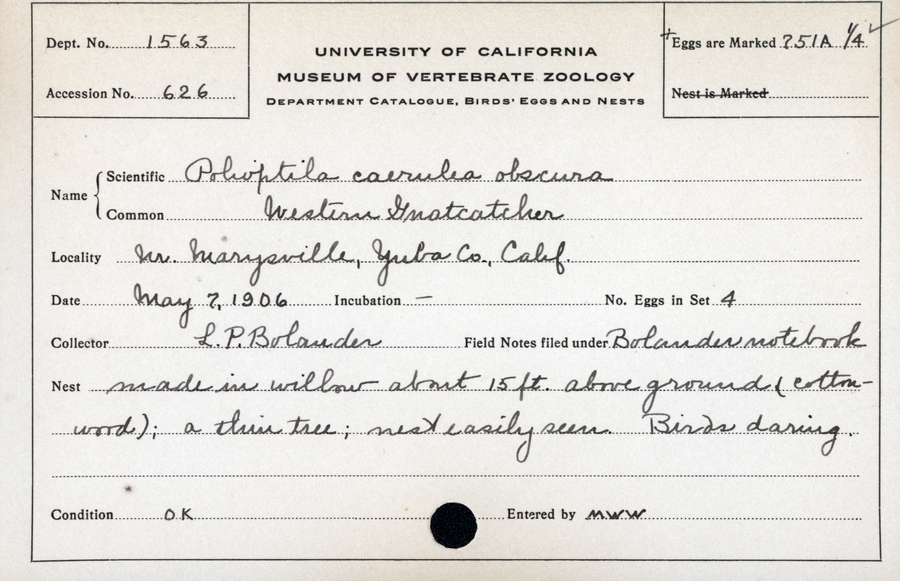 Dept. No. 1563
Accession No. 626
UNIVERSITY OF CALIFORNIA
MUSEUM OF VERTEBRATE ZOOLOGY
DEPARTMENT CATALOGUE, BIRDS' EGGS AND NESTS
+Eggs are Marked 751A 1/4 ✓
Nest is Marked
Name
Scientific Polioptila caerulea obscura
Common Western Gnatcatcher
Locality Nr. Marysville, Yuba Co., Calif.
Date May 7, 1906 Incubation — No. Eggs in Set 4
Collector L. P. Bolander Field Notes filed under Bolander notebook
Nest made in willow about 15 ft. above ground (cotton-
wood); a thin tree; nest easily seen. Birds daring.
Condition OK Entered by MWW